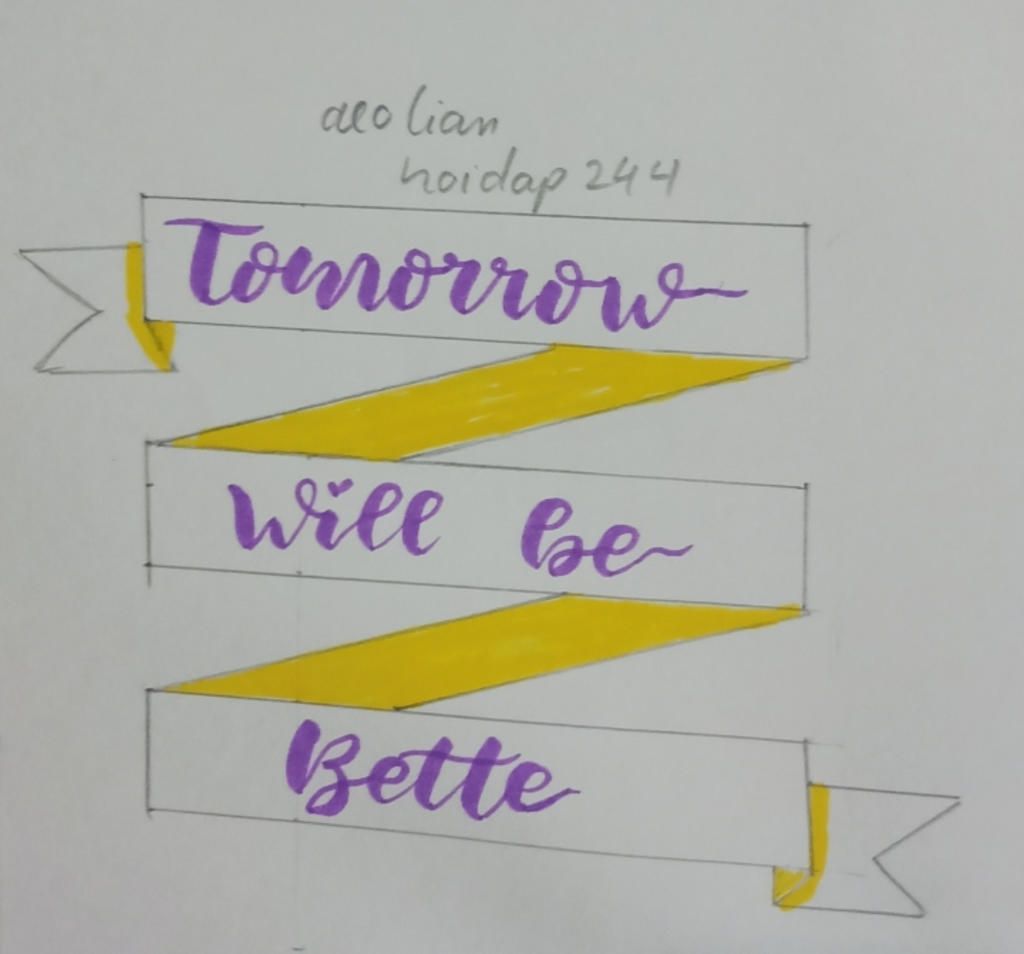 aeolian
hoidap 244
Tomorrow
Will be
Bette